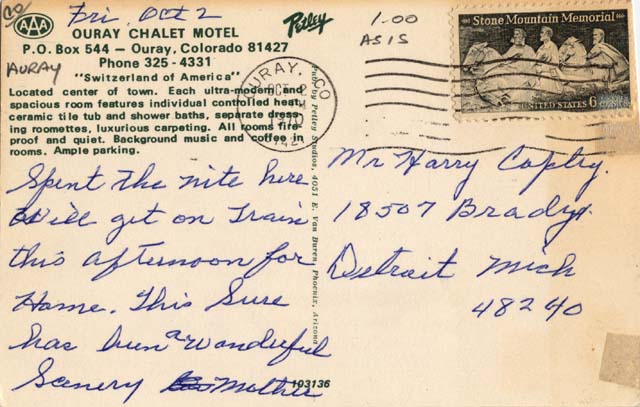 CO
Fri, Oct 2
AAA
OURAY CHALET MOTEL
P.O. Box 544 — Ouray, Colorado 81427
Phone 325 - 4331
AURAY
"Switzerland of America"
Located center of town. Each ultra-modern and
spacious room features individual controlled heat,
ceramic tile tub and shower baths, separate dress-
ing roomettes, luxurious carpeting. All rooms fire-
proof and quiet. Background music and coffee in
rooms. Ample parking.
Spent the nite here
Will get on Train
this afternoon for
Home. This Sure
has been a wonderful
Scenery Mother
Petley
Pub. by Petley Studios, 4051 E. Van Buren, Phoenix, Arizona
103136
1.00
AS IS
OURAY, CO
OCT 2
Stone Mountain Memorial
UNITED STATES 6 CENTS
Mr Harry Copley.
18507 Brady.
Detroit Mich
48240